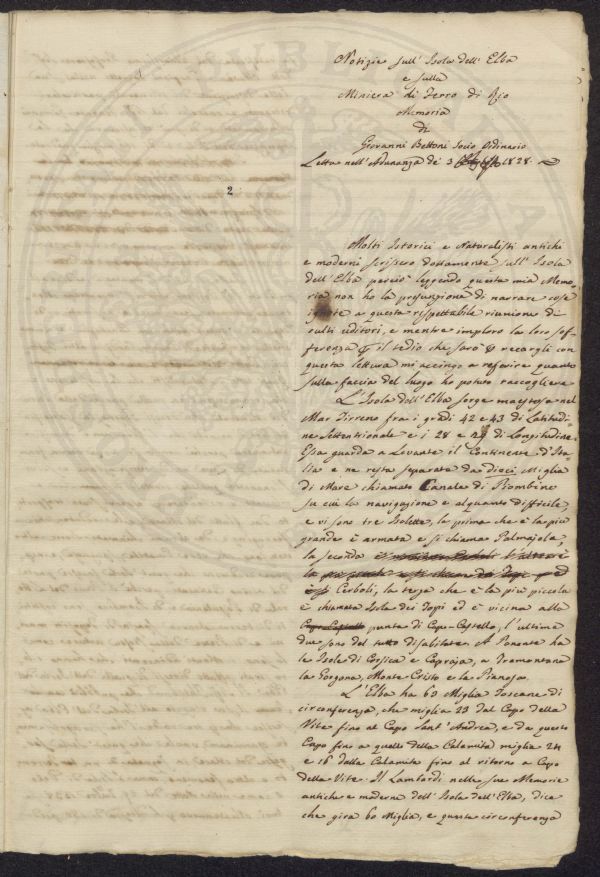 Notizie sull' Isola dell' Elba
e sulla
Miniera di Ferro di Rio
Memoria
di
Giovanni Bettoni Socio Ordinario
Letta nell' Adunanza de' 3 1828.
2
Molti Istorici e Naturalisti antichi
e moderni scrissero dottamente sull' Isola
dell' Elba perciò leggendo questa mia Memo-
ria non ho la presunzione di narrare cose
ignote a questa rispettabile riunione di
culti uditori, e mentre imploro la loro sof-
ferenza il tedio che sarò recargli con
questa lettura mi accingo a referire quanto
sulla faccia del luogo ho potuto raccogliere
L'Isola dell' Elba sorge maestosa nel
Mar Tirreno fra i gradi 42 e 43 di Latitudi-
ne Settentrionale e i 28 e 29 di Longitudine
Essa guarda a Levante il Continente d'Ita-
lia e ne resta separata da dieci Miglia
di Mare chiamato Canale di Piombino
su cui la navigazione e alquanto difficile,
e vi sono tre Isolette, la prima che è la più
grande è armata e si chiama Palmajola,
la seconda
Cerboli, la terza che è la più piccola
è chiamata Isola dei Topi ed è vicina alla
punta di Capo-Castello, l'ultime
due sono del tutto disabitate. A Ponente ha
le Isole di Corsica e Capraja, a Tramontana
la Gorgona, Monte Cristo e la Pianosa.
L'Elba ha 60 Miglia Toscane di
circonferenza, che miglia 23 dal Capo della
Vite fino al Capo Sant' Andrea, e da questo
Capo fino a quello della Calamita miglia 24
e 16 dalla Calamita fino al ritorno a Capo
della Vite. Il Lambardi nelle sue Memorie
antiche e moderne dell' Isola dell' Elba, dice
che gira 60 Miglia, e questa circonferenza